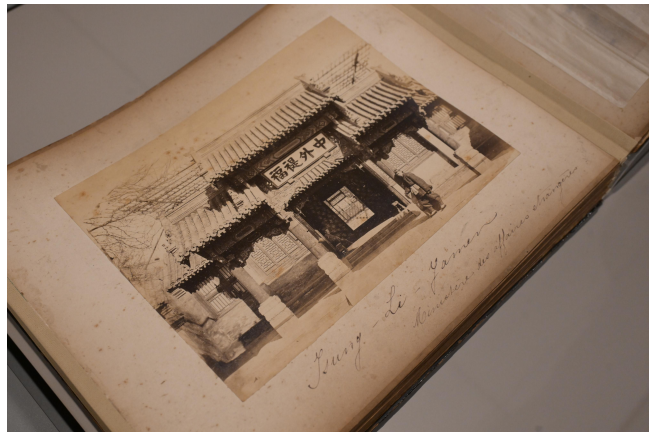 中外禔福
Tsung-Li-Yamen
Ministère des affaires étrangères